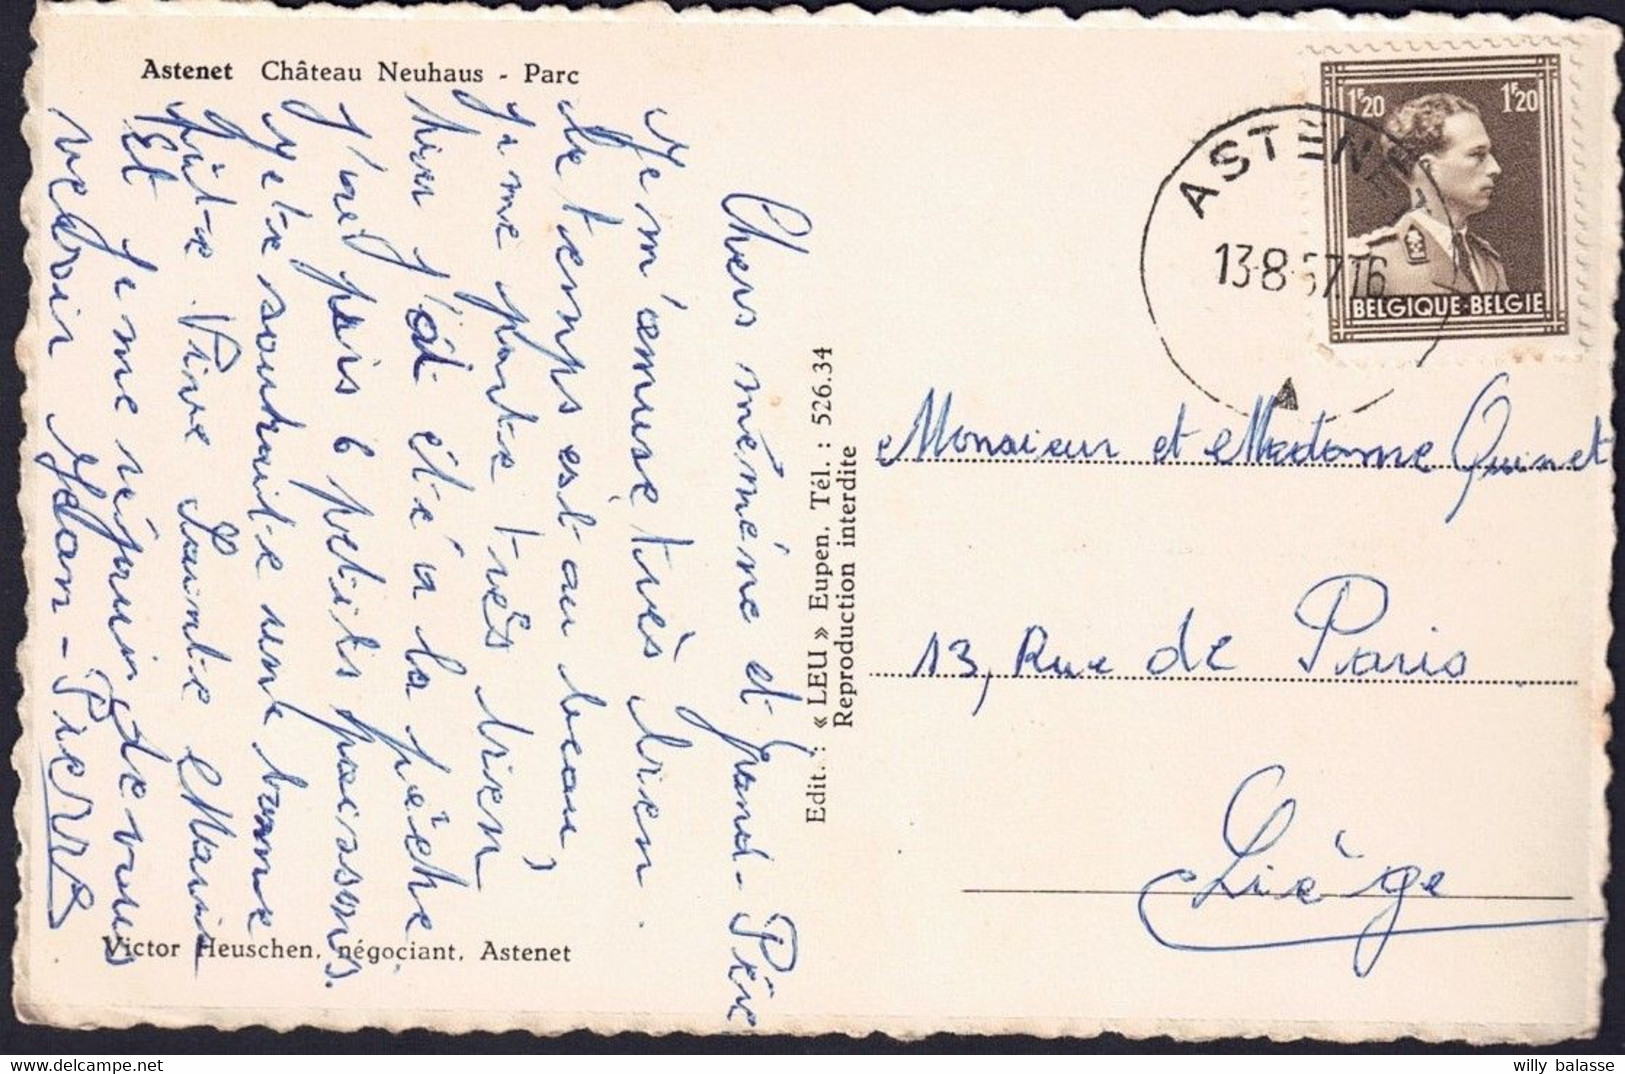 Astenet Château Neuhaus - Parc
Chers mémène et grand-Père
Je m'amuse très bien.
Le temps est au beau,
je me porte très bien
hier j'ai été à la pêche
J'ai pris 6 petits poissons.
je te souhaite une bonne
fête Vive Sainte Marie
Et je me réjouis de vous
revoir Jean-Pierre
Victor Heuschen, négociant, Astenet
Edit. : « LEU » Eupen. Tél. : 526.34
Reproduction interdite
1F20 1F20
BELGIQUE-BELGIE
ASTENET
13-8-57 16
A
Monsieur et Madame Quinet
13, Rue de Paris
Liège
willy balasse